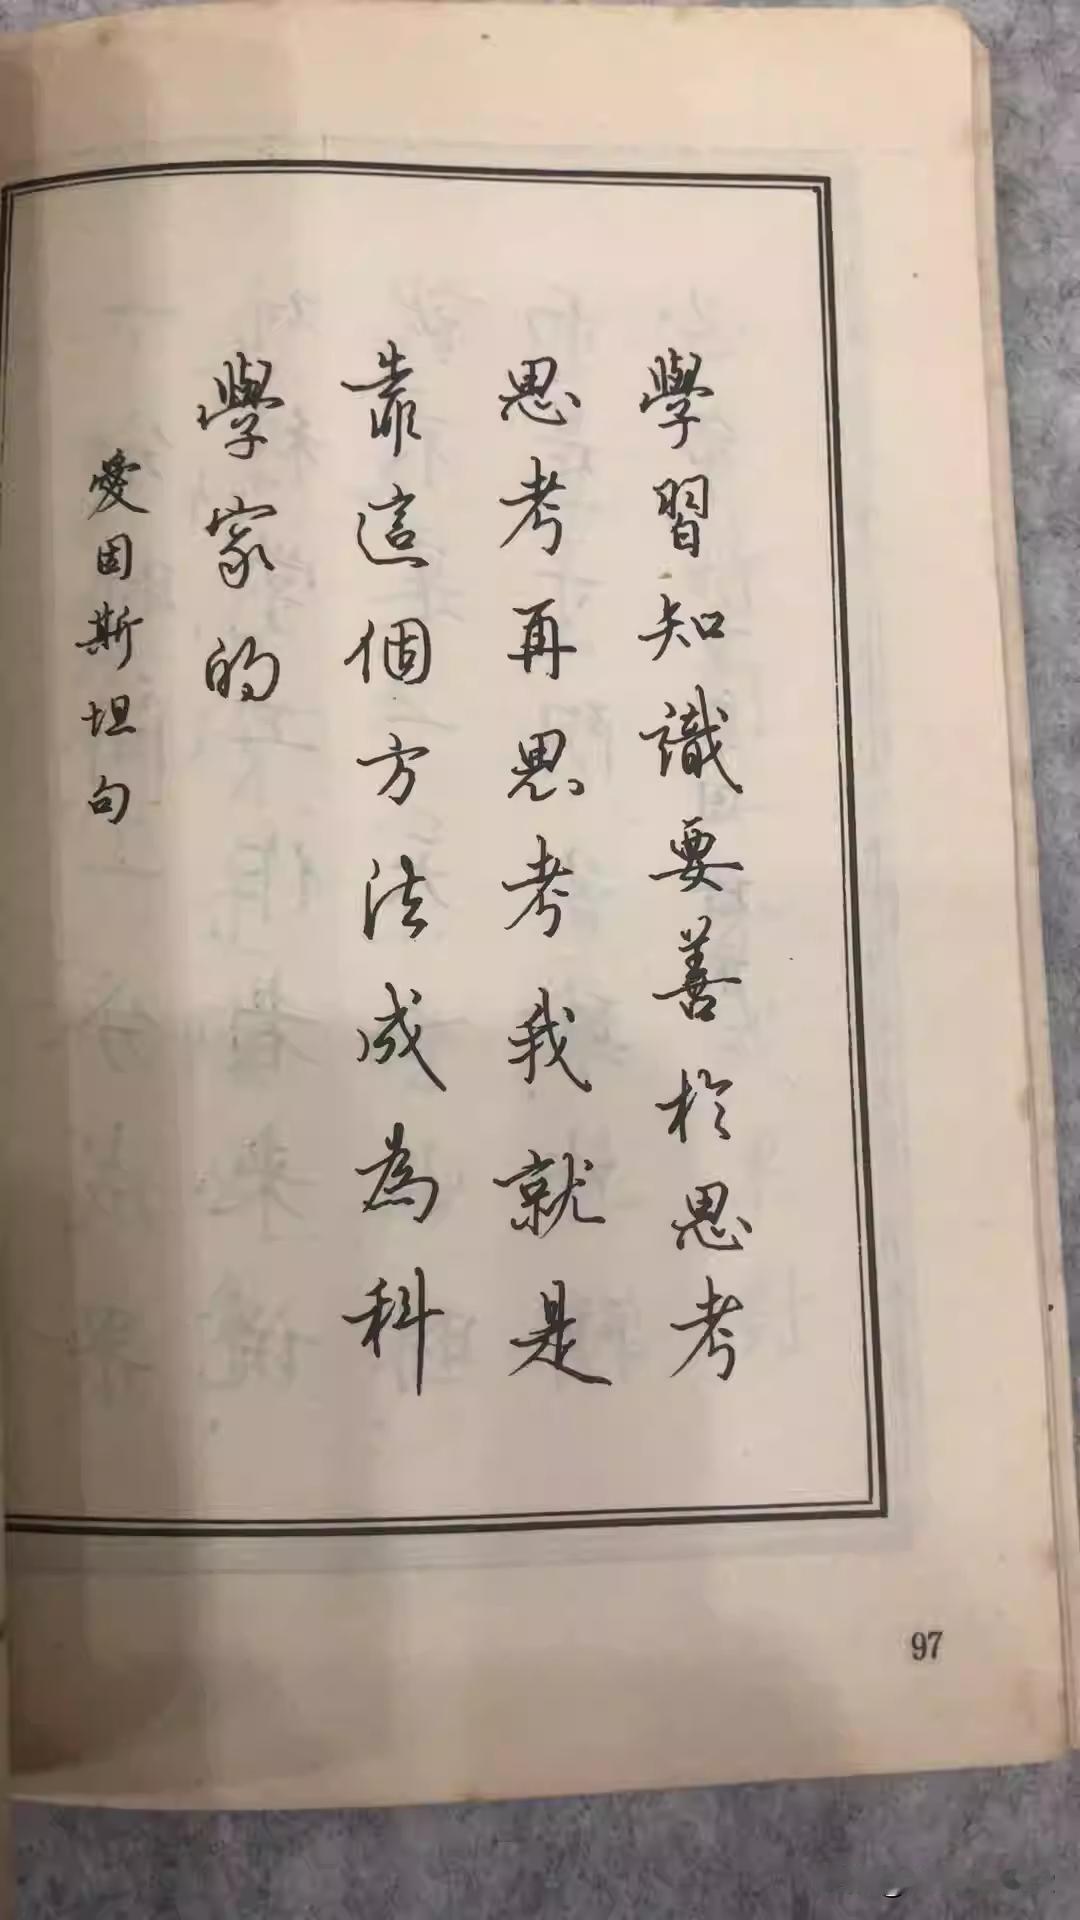 學習知識要善於思考
思考再思考我就是
靠這個方法成為科
學家的
愛因斯坦句
97